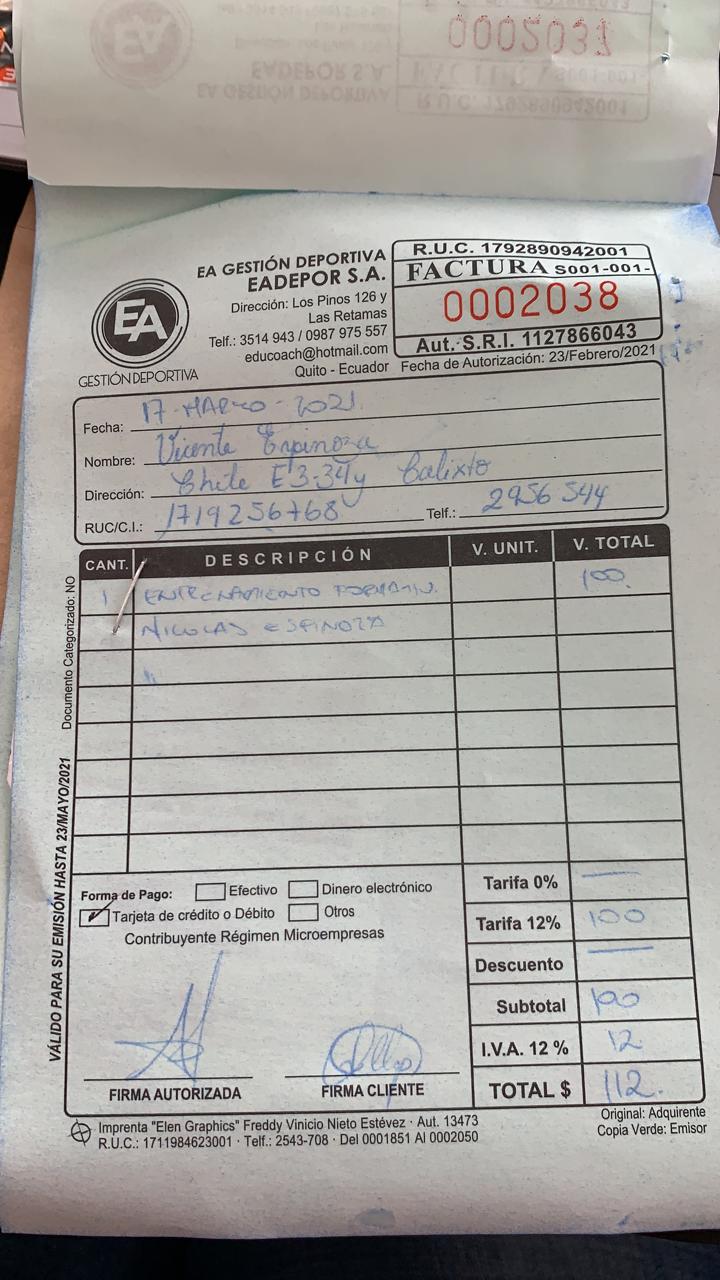 0002037
EADEPOR S.A.
EA GESTIÓN DEPORTIVA
R.U.C. 1792890942001
EA
GESTIÓN DEPORTIVA
EA GESTIÓN DEPORTIVA
EADEPOR S.A.
Dirección: Los Pinos 126 y
Las Retamas
Telf.: 3514 943 / 0987 975 557
educoach@hotmail.com
Quito - Ecuador
R.U.C. 1792890942001
FACTURA S001-001-
0002038
Aut. S.R.I. 1127866043
Fecha de Autorización: 23/Febrero/2021
Fecha: 17-MARZO-2021
Nombre: Vicente Espinoza
Dirección: Chile E3-34 y Calixto
RUC/C.I.: 1719256768 Telf.: 2956 544
CANT. DESCRIPCIÓN V. UNIT. V. TOTAL
1 ENTRENAMIENTO 100
NICOLAS ESPINOZA
Documento Categorizado: NO
VÁLIDO PARA SU EMISIÓN HASTA 23/MAYO/2021
Forma de Pago: Efectivo Dinero electrónico
Tarjeta de crédito o Débito Otros
Contribuyente Régimen Microempresas
Tarifa 0% —
Tarifa 12% 100
Descuento —
Subtotal 100
I.V.A. 12 % 12
TOTAL $ 112
FIRMA AUTORIZADA FIRMA CLIENTE
Imprenta "Elen Graphics" Freddy Vinicio Nieto Estévez · Aut. 13473
R.U.C.: 1711984623001 · Telf.: 2543-708 · Del 0001851 Al 0002050
Original: Adquirente
Copia Verde: Emisor